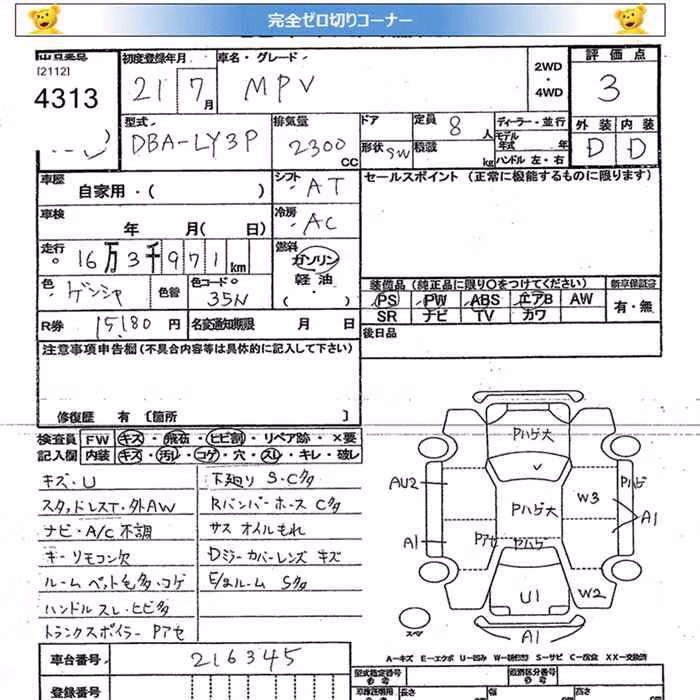 完全ゼロ切りコーナー
[2112]
4313
初度登録年月
21 7月
車名・グレード
MPV
2WD・4WD
評価点
3
外装 内装
D D
型式
DBA-LY3P
排気量
2300 CC
ドア
形状 SW
定員 8 人
積載 kg
ディーラー・並行
モデル年式 年
ハンドル 左・右
車歴
自家用・( )
シフト
AT
セールスポイント (正常に機能するものに限ります)
車検
年 月( 日)
冷房
AC
走行
16万3千971km
燃料
ガソリン
軽油
・( )
色
ゲンシャ
色替
色コードNo
35N
装備品 (純正品に限り○をつけてください)
新車保証書
PS PW ABS エアB AW
SR ナビ TV カワ
有・無
R券 15180 円
名変通知期限 月 日
後日品
注意事項申告欄 (不具合内容等は具体的に記入して下さい)
修復歴 有 〔箇所 〕
検査員記入欄
FW キズ・飛石・ヒビ割・リペア跡・×要
内装 キズ・汚レ・コゲ・穴・スレ・キレ・破レ
キズ・U
スタッドレスT・外AW
ナビ・A/C不調
キーリモコン欠
ルーム ペット毛多・コゲ
ハンドル スレ・ヒビ多
トランクスポイラー Pアセ
下廻り S・C多
Rバンパーホース C多
サス オイルもれ
Dミラーカバーレンズ キズ
E/ルーム S多
Pハゲ大
AU2
A1
Pハゲ大
Pアセ
Pハゲ
W3
Pハゲ
A1
W2
U1
A1
スペア
A−キズ E−エクボ U−凹み W−補修跡 S−サビ C−腐食 XX−交換済
車台番号 216345
登録番号
型式指定番号
参考
類別区分番号
参考
長さ
幅
高さ